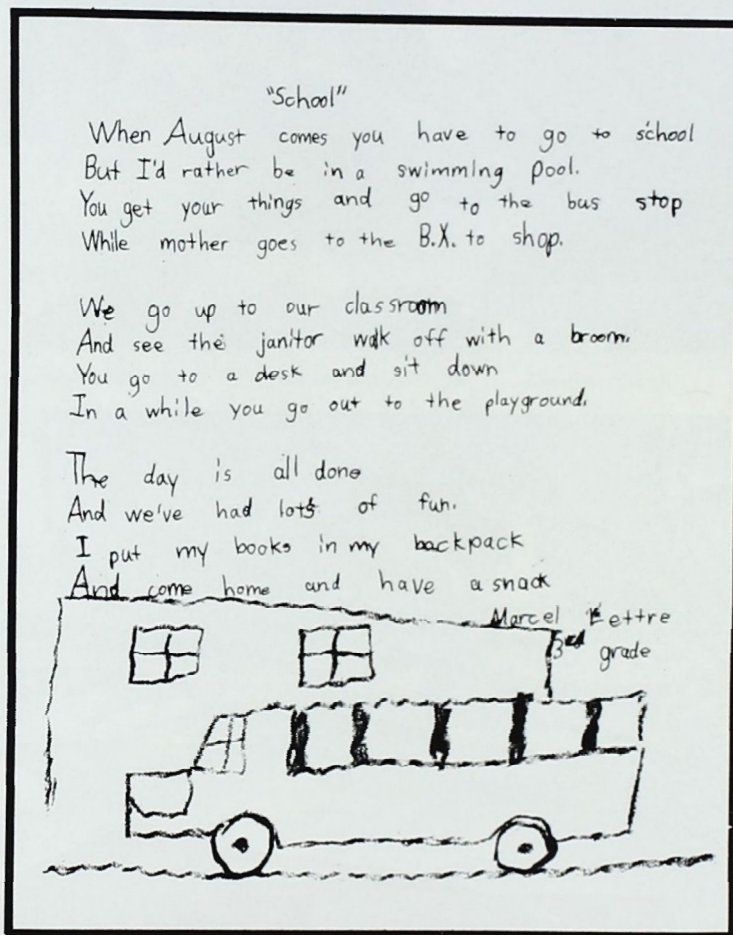 "School"
When August comes you have to go to school
But I'd rather be in a swimming pool.
You get your things and go to the bus stop
While mother goes to the B.X. to shop.
We go up to our classroom
And see the janitor walk off with a broom.
You go to a desk and sit down
In a while you go out to the playground.
The day is all done
And we've had lots of fun.
I put my books in my backpack
And come home and have a snack
Marcel Lettre
3rd grade